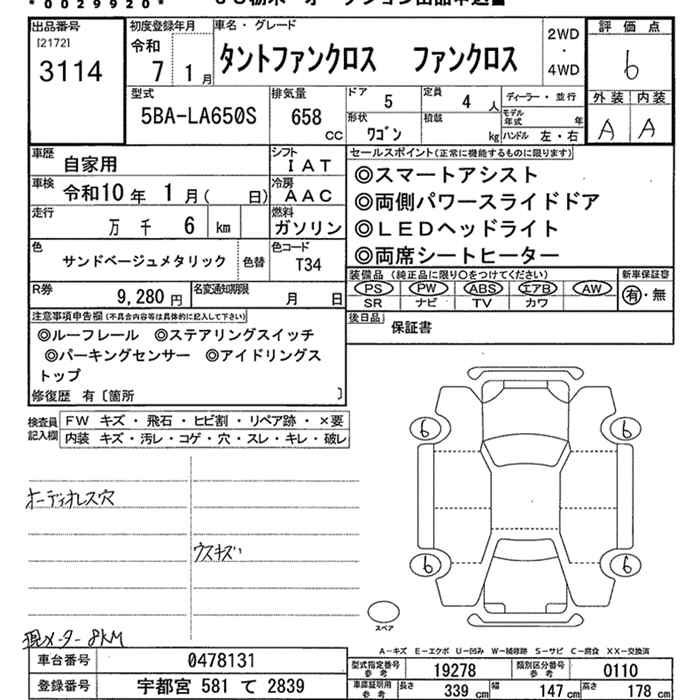 *0029920*
出品番号
[2172]
3114
初度登録年月
令和
7 1月
車名・グレード
タントファンクロス ファンクロス
2WD
・
4WD
評価点
6
外装 内装
A A
型式
5BA-LA650S
排気量
658 CC
ドア 5
定員 4 人
形状 ワゴン
積載 kg
ディーラー・並行
モデル年式 年
ハンドル 左・右
車歴 自家用
シフト IAT
車検 令和10年 1月( 日)
冷房 AAC
走行 万 千 6 km
燃料 ガソリン
色 サンドベージュメタリック 色替
色コード T34
R券 9,280円
名変通知期限 月 日
セールスポイント(正常に機能するものに限ります)
◎スマートアシスト
◎両側パワースライドドア
◎LEDヘッドライト
◎両席シートヒーター
装備品 (純正品に限り○をつけてください)
PS PW ABS エアB AW
SR ナビ TV カワ
新車保証書
有・無
後日品 保証書
注意事項申告欄(不具合内容等は具体的に記入して下さい)
◎ルーフレール ◎ステアリングスイッチ
◎パーキングセンサー ◎アイドリングス
トップ
修復歴 有〔箇所 〕
検査員記入欄
FW キズ・飛石・ヒビ割・リペア跡・×要
内装 キズ・汚レ・コゲ・穴・スレ・キレ・破レ
オーディオレス穴
ウスキズ
現メーター 8KM
6 6
6 6
スペア
A-キズ E-エクボ U-凹み W-補修跡 S-サビ C-腐食 XX-交換済
車台番号 0478131
登録番号 宇都宮 581 て 2839
型式指定番号 参考 19278
類別区分番号 参考 0110
車庫証明用 参考 長さ 339 cm 幅 147 cm 高さ 178 cm